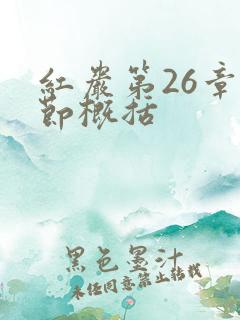 红岩第26章
節概括
黑色墨汁
未经同意禁止转载